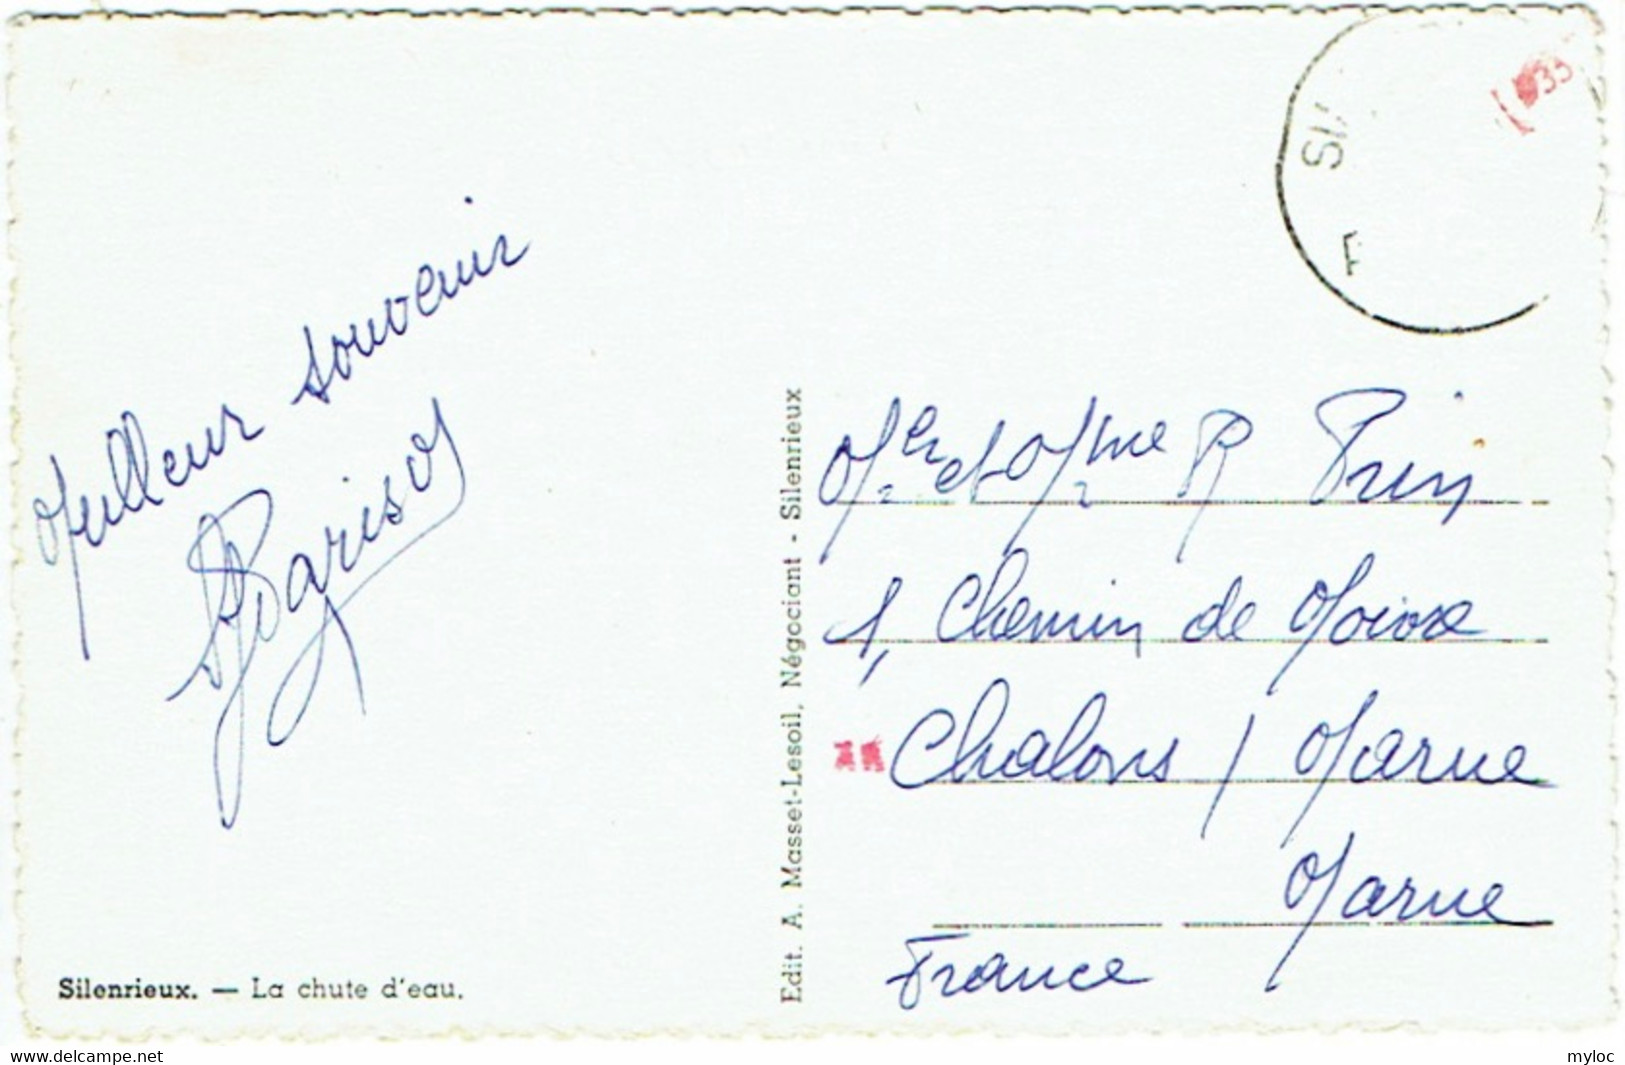 Meilleur souvenir
Parisot
Silenrieux. — La chute d'eau.
Edit. A. Masset-Lesoil, Négociant - Silenrieux
Mr et Mme R Prin
1, Chemin de Moivre
Chalons / Marne
Marne
France
SI
F
www.delcampe.net
myloc